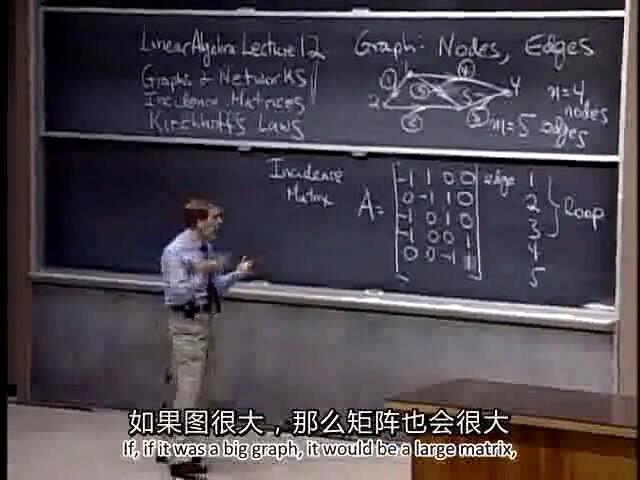 Linear Algebra Lecture 12
Graphs + Networks
Incidence Matrices
Kirchhoff's Laws
Graph: Nodes, Edges
1
4
1
3
5
4
2
2
5
n=4
nodes
m=5 edges
Incidence
Matrix
A=
-1 1 0 0 edge 1
0 -1 1 0 2 loop
-1 0 1 0 3
-1 0 0 1 4
0 0 -1 1 5
如果图很大，那么矩阵也会很大
If, if it was a big graph, it would be a large matrix,